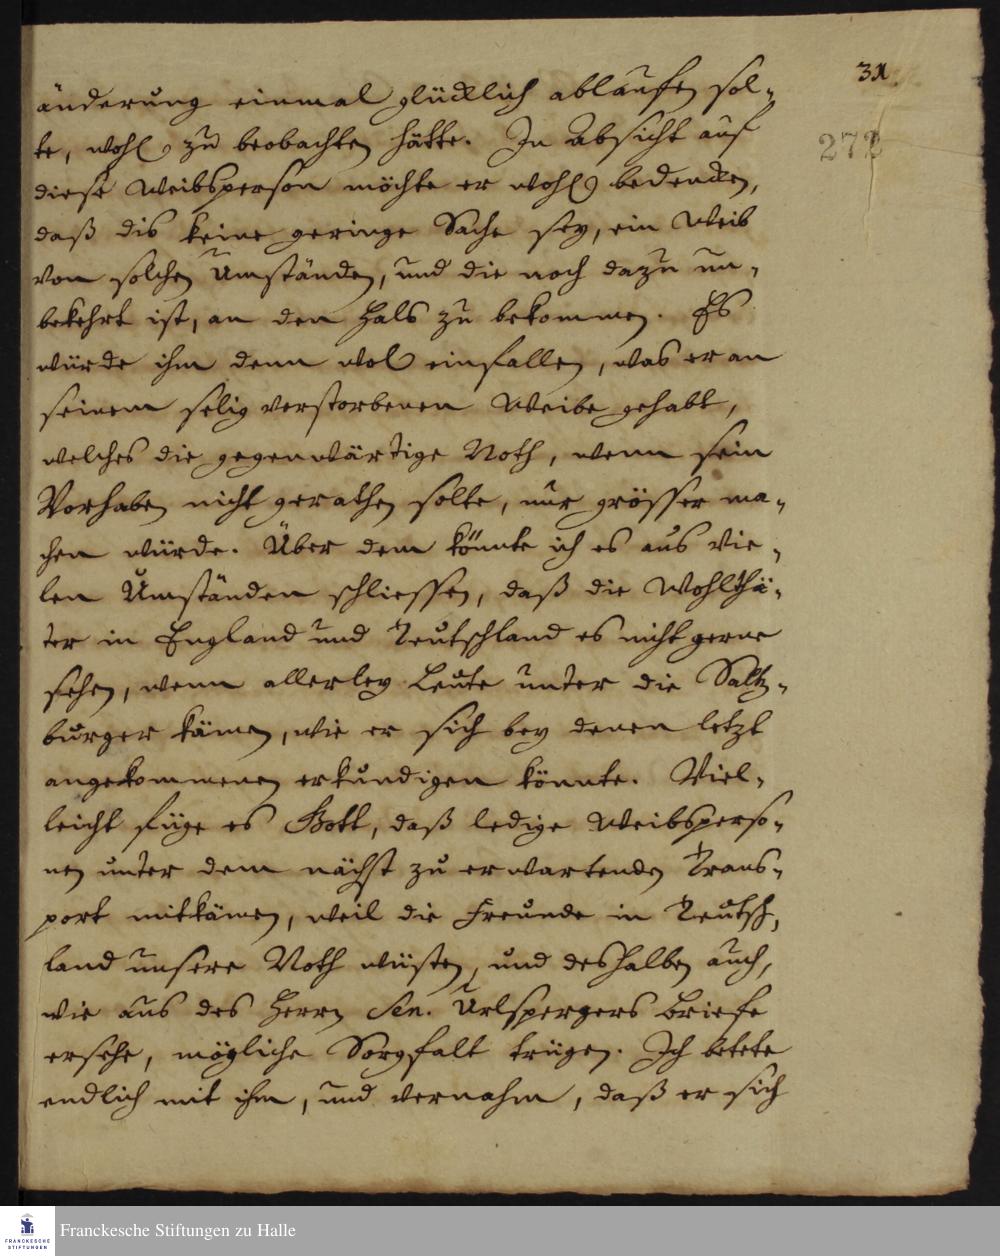 31
272
änderung einmal glücklich ablaufen sol-
te, wohl zu beobachten hätte. In Absicht auf
diese Weibsperson möchte er wohl bedencken,
daß dis keine geringe Sache sey, ein Weib
von solchen Umständen, und die noch dazu un-
bekehrt ist, an den Hals zu bekommen. Es
würde ihm denn wol einfallen, was er an
seinem selig verstorbenen Weibe gehabt,
welches die gegenwärtige Noth, wenn sein
Vorhaben nicht gerathen solte, nur grösser ma-
chen würde. Über dem könnte ich es aus vie-
len Umständen schliessen, daß die Wohlthä-
ter in England und Teutschland es nicht gerne
sehen, wenn allerley Leute unter die Saltz-
burger kämen, wie er sich bey denen letzt
angekommenen erkundigen könnte. Viel-
leicht füge es Gott, daß ledige Weibsperso-
nen unter dem nächst zu erwartenden Trans-
port mitkämen, weil die Freunde in Teutsch-
land unsere Noth wüsten, und deshalben auch,
wie aus des Herrn Sen. Urlspergers Briefe
ersehe, mögliche Sorgfalt trügen. Ich betete
endlich mit ihm, und vernahm, daß er sich
FRANCKESCHE
STIFTUNGEN
Franckesche Stiftungen zu Halle